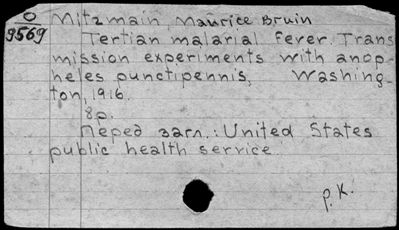 O
9569
Mitzmain, Maurice Bruin
Tertian malarial fever. Trans
mission experiments with anop
heles punctipennis, Washing-
ton, 1916.
8p.
Перед загл.: United States
public health service.
р.К.